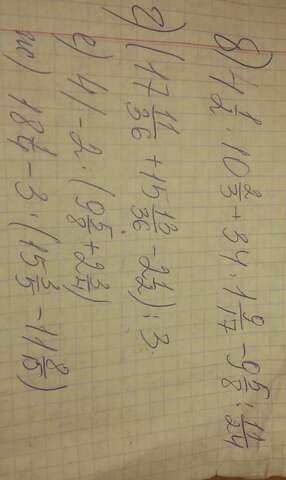 в) 4 1/2 · 10 2/3 + 34 · 1 9/17 - 9 5/8 : 11/24
г) (17 11/36 + 15 13/36 - 2 1/2) : 3
е) 41 - 2 · (9 5/8 + 2 3/4)
ж) 18 1/4 - 3 · (15 3/5 - 11 8/15)